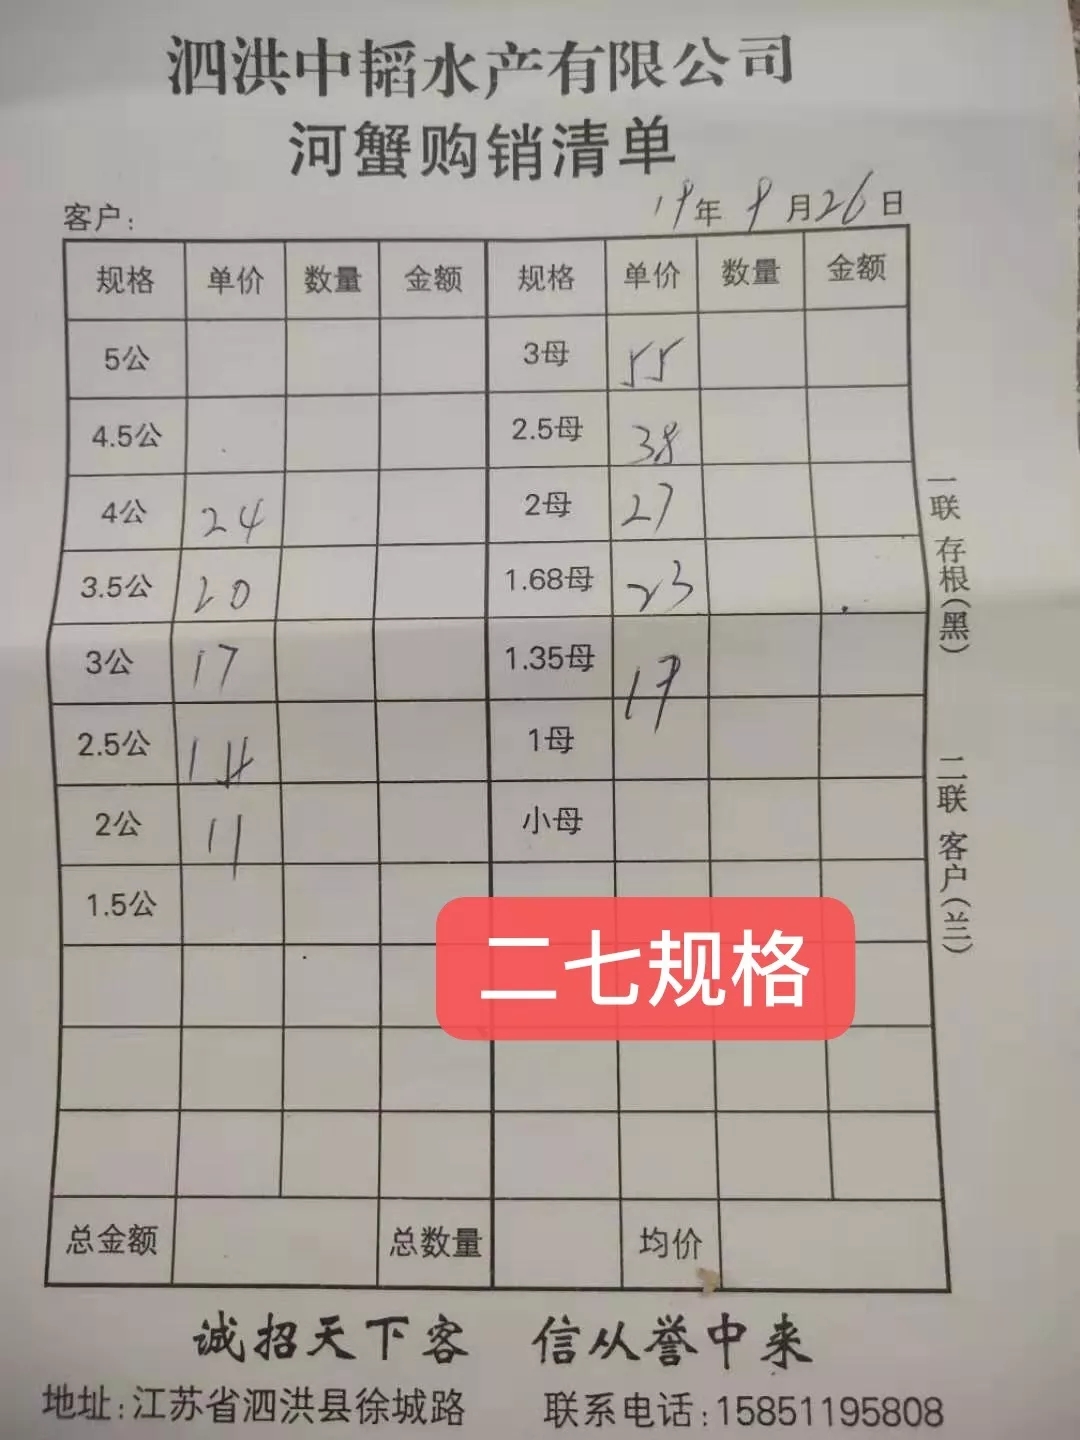 泗洪中韬水产有限公司
河蟹购销清单
客户: 19年 9月26日
规格 单价 数量 金额 规格 单价 数量 金额
5公 3母 55
4.5公 2.5母 38
4公 24 2母 27
3.5公 20 1.68母 23
3公 17 1.35母
2.5公 14 1母
2公 11 小母
1.5公
二七规格
总金额 总数量 均价
一联 存根(黑)
二联 客户(兰)
诚招天下客 信从誉中来
地址:江苏省泗洪县徐城路 联系电话:15851195808